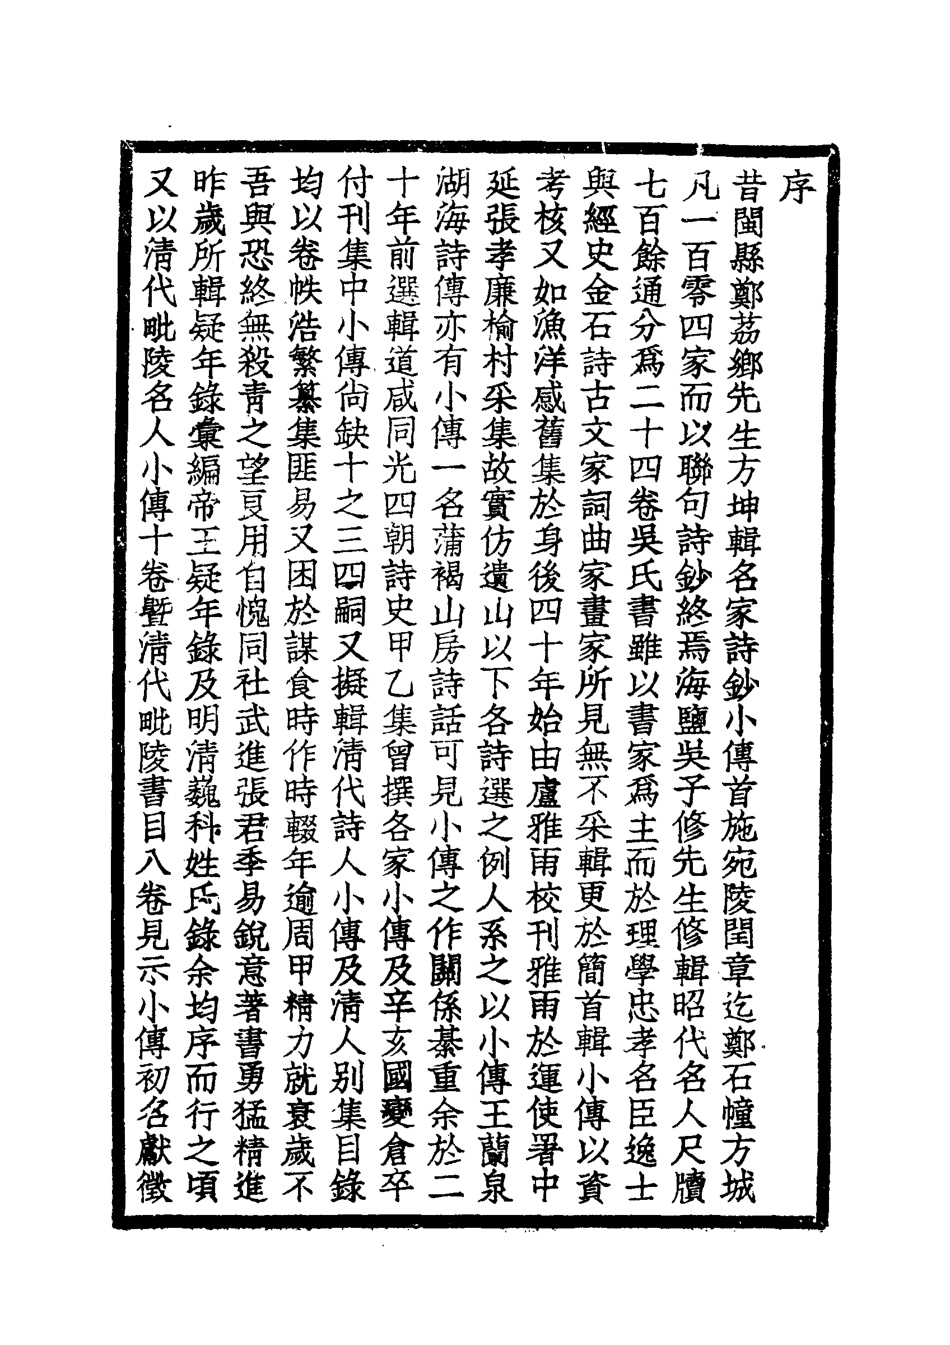 序
昔閩縣鄭荔鄉先生方坤輯名家詩鈔小傳首施宛陵閏章迄鄭石幢方城
凡一百零四家而以聯句詩鈔終焉海鹽吳子修先生修輯昭代名人尺牘
七百餘通分爲二十四卷吳氏書雖以書家爲主而於理學忠孝名臣逸士
與經史金石詩古文家詞曲家畫家所見無不采輯更於簡首輯小傳以資
考核又如漁洋感舊集於身後四十年始由盧雅雨校刊雅雨於運使署中
延張孝廉榆村采集故實仿遺山以下各詩選之例人系之以小傳王蘭泉
湖海詩傳亦有小傳一名蒲褐山房詩話可見小傳之作關係綦重余於二
十年前選輯道咸同光四朝詩史甲乙集曾撰各家小傳及辛亥國變倉卒
付刊集中小傳尙缺十之三四嗣又擬輯淸代詩人小傳及淸人別集目錄
均以卷帙浩繁纂集匪易又困於謀食時作時輟年逾周甲精力就衰歲不
吾與恐終無殺靑之望夏用自愧同社武進張君季易銳意著書勇猛精進
昨歲所輯疑年錄彙編帝王疑年錄及明淸巍科姓氏錄余均序而行之頃
又以淸代毗陵名人小傳十卷曁淸代毗陵書目八卷見示小傳初名獻徵